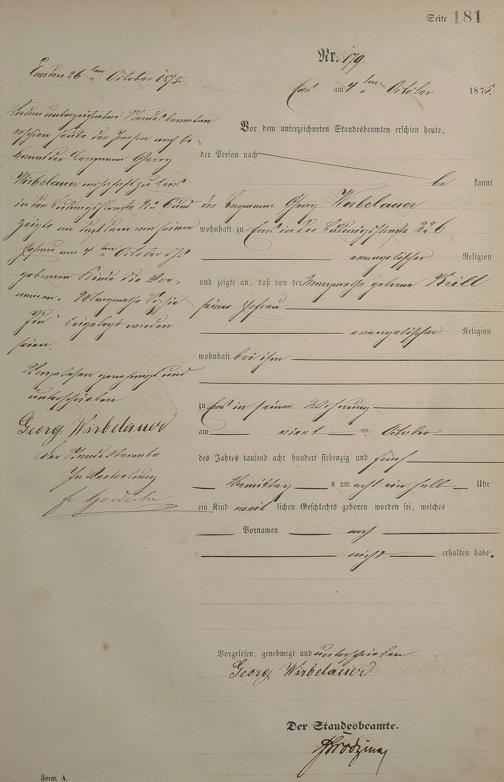 Seite 181
Nr. 179
Ems am 4ten October 1875.
Vor dem unterzeichneten Standesbeamten erschien heute,
der Person nach
be kannt
der Bergmann Georg Wirbelauer
wohnhaft zu Ems in der Ludwigstraße No 6
evangelischer Religion
und zeigte an, daß von der Margarethe geborne Krill
seiner Ehefrau
evangelischer Religion
wohnhaft bei ihm
zu Ems in seiner Wohnung
am viert en October
des Jahres tausend acht hundert siebenzig und fünf
Vormittag s um acht ein halb Uhr
ein Kind weib lichen Geschlechts geboren worden sei, welches
Vornamen noch
nicht erhalten habe.
Vorgelesen, genehmigt und unterschrieben
Georg Wirbelauer
Der Standesbeamte.
26ten October 1875.
Vor dem unterzeichneten Standesbeamten
erschien heute der Person nach be-
kannt der Bergmann Georg
Wirbelauer wohnhaft zu Ems
in der Ludwigstraße No 6 und
zeigte an daß dem von seiner
Ehefrau am 4ten October
gebornen Kinde die Vor-
namen
beigelegt worden
seien.
Vorgelesen genehmigt und
unterschrieben
Georg Wirbelauer
Der Standesbeamte
In Vertretung
Form. A.